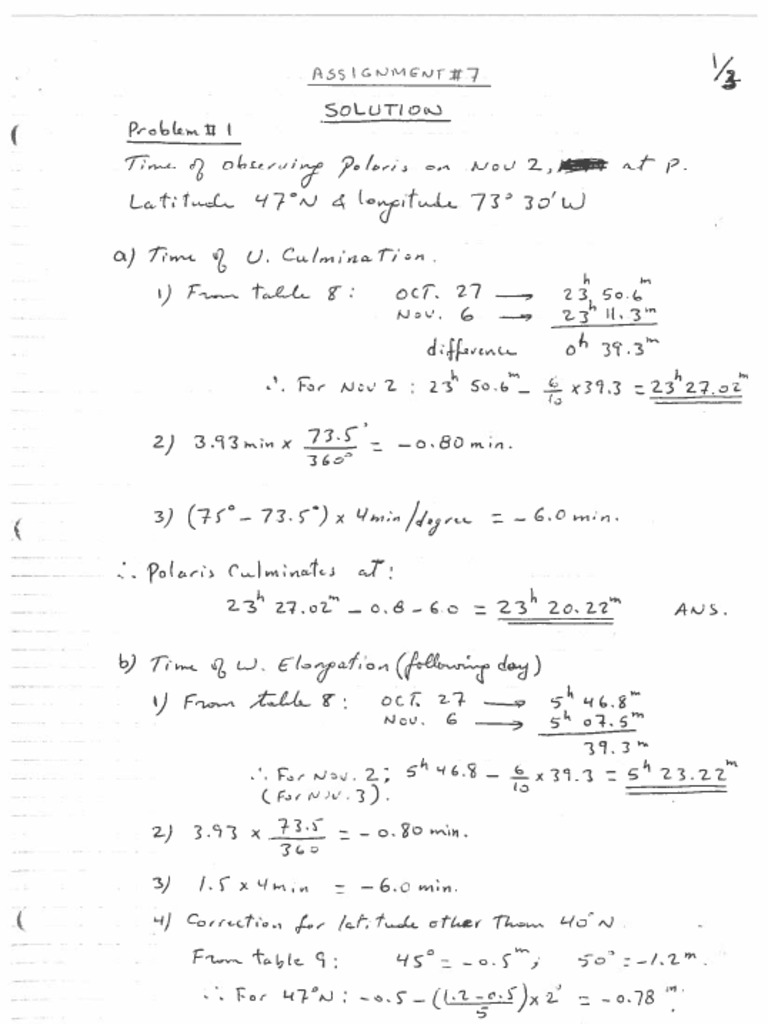 1/3
ASSIGNMENT #7
SOLUTION
Problem # 1
Time of observing Polaris on Nov 2, at P.
Latitude 47°N & longitude 73° 30'W
a) Time of U. Culmination.
1) From table 8: OCT. 27 → 23h 50.6m
Nov. 6 → 23h 11.3m
difference 0h 39.3m
∴ For Nov 2 : 23h 50.6m - 6/10 x39.3 = 23h 27.02m
2) 3.93 min x 73.5°/360° = -0.80 min.
3) (75° - 73.5°) x 4 min/degree = -6.0 min.
∴ Polaris Culminates at:
23h 27.02m - 0.8 - 6.0 = 23h 20.22m ANS.
b) Time of W. Elongation (following day)
1) From table 8: OCT. 27 → 5h 46.8m
Nov. 6 → 5h 07.5m
39.3m
∴ For Nov. 2; 5h 46.8 - 6/10 x 39.3 = 5h 23.22m
(For Nov. 3).
2) 3.93 x 73.5/360 = -0.80 min.
3) 1.5 x 4 min = -6.0 min.
4) Correction for latitude other Than 40°N
From table 9: 45° = -0.5m; 50° = -1.2m.
∴ For 47°N: -0.5 - (1.2-0.5)/5 x 2° = -0.78m.